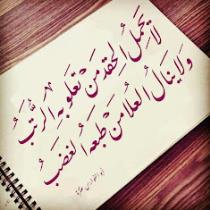 لا يحمل الحقد من تعلو به الرتب
ولا ينال العلا من طبعه الغضب